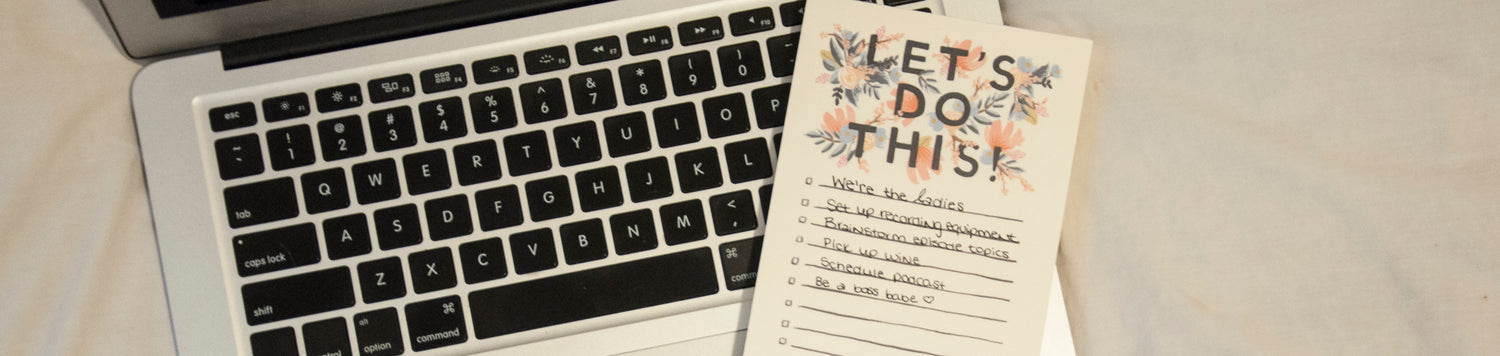 esc F1 F2 F3 F4 F5 F6 F7 F8 F9 F10
~ ! @ # $ % ^ & * ( )
1 2 3 4 5 6 7 8 9 0
tab Q W E R T Y U I O P
caps lock A S D F G H J K L
shift Z X C V B N M < ,
alt ⌘ ⌘
trol option command comm
LET'S
DO
THIS!
We're the ladies
Set up recording equipment
Brainstorm episode topics
Pick up wine
Schedule podcast
Be a boss babe ♡